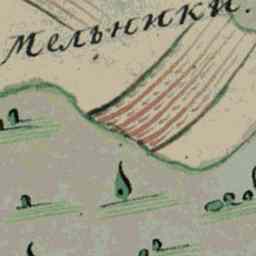 Мельники.